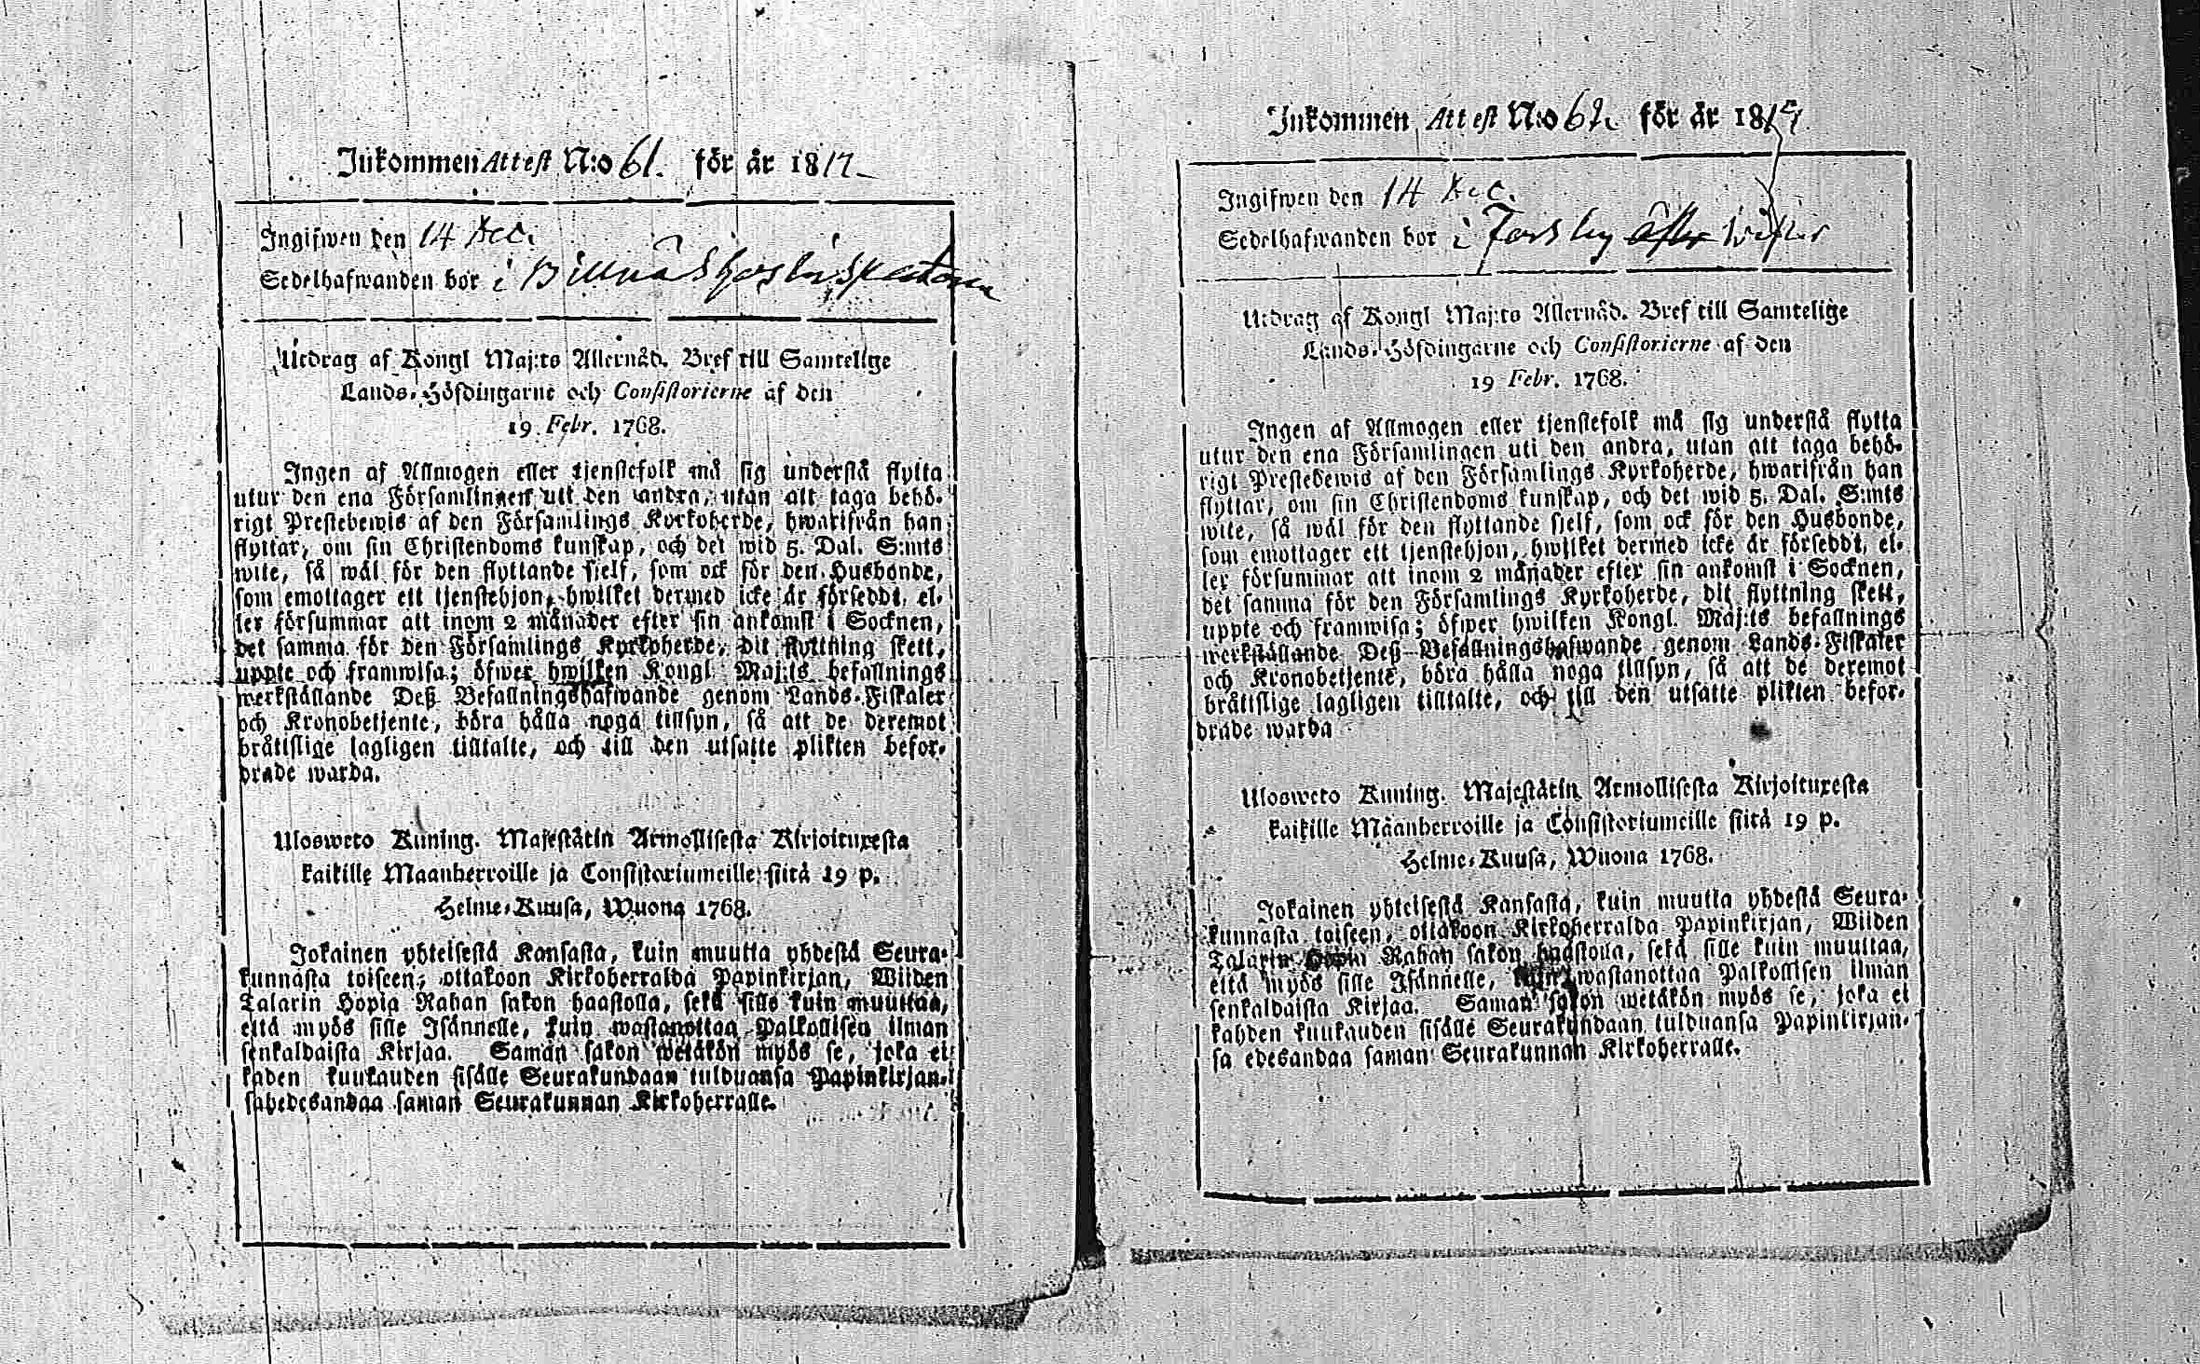 Inkommen Attest N:o 61. för år 1817
Ingifwen den 14 Dec.
Sedelhafwanden bor i Billnäs
Utdrag af Kongl Maj:ts Allernåd. Bref till Samtelige
Lands-Höfdingarne och Consistorierne af den
19 Febr. 1768.
Ingen af Allmogen eller tjenstefolk må sig understå flytta
utur den ena Församlingen uti den andra, utan att taga behö-
rigt Prestebewis af den Församlings Kyrkoherde, hwarifrån han
flyttar, om sin Christendoms kunskap, och det wid 5. Dal. S:mts
wite, så wäl för den flyttande sjelf, som ock för den Husbonde,
som emottager ett tjenstehjon, hwilket dermed icke är försedt, el-
ler försummar att inom 2 månader efter sin ankomst i Socknen,
det samma för den Församlings Kyrkoherde, dit flyttning skett,
uppte och framwisa; öfwer hwilken Kongl Maj:ts befallnings
werkställande Deß Befallningshafwande genom Lands-Fiskaler
och Kronobetjente, böra hålla noga tillsyn, så att de deremot
bråttslige lagligen tilltalte, och till den utsatte plikten befor-
drade warda.
Ulosweto Kuning. Majestätin Armollisesta Kirjoituxesta
kaikille Maanherroille ja Consistoriumeille siitä 19 p.
Helme-Kuusa, Wuona 1768.
Jokainen yhteisestä Kansasta, kuin muutta yhdestä Seura-
kunnasta toiseen, ottakoon Kirkoherralda Papinkirjan, Wiiden
Talarin Hopia Rahan sakon haastolla, sekä sille kuin muuttaa,
että myös sille Isännelle, kuin wastanottaa Palkollisen ilman
senkaldaista Kirjaa. Saman sakon wetäkön myös se, joka ei
kaden kuukauden sisälle Seurakundaan tulduansa Papinkirjan-
sahedesandaa saman Seurakunnan Kirkoherralle.
Inkommen Attest N:o 62. för år 18
Ingifwen den 14 Dec.
Sedelhafwanden bor i Forsby
Utdrag af Kongl Maj:ts Allernåd. Bref till Samtelige
Lands-Höfdingarne och Consistorierne af den
19 Febr. 1768.
Ingen af Allmogen eller tjenstefolk må sig understå flytta
utur den ena Församlingen uti den andra, utan att taga behö-
rigt Prestebewis af den Församlings Kyrkoherde, hwarifrån han
flyttar, om sin Christendoms kunskap, och det wid 5. Dal. S:mts
wite, så wäl för den flyttande sjelf, som ock för den Husbonde,
som emottager ett tjenstehjon, hwilket dermed icke är försedt, el-
ler försummar att inom 2 månader efter sin ankomst i Socknen,
det samma för den Församlings Kyrkoherde, dit flyttning skett,
uppte och framwisa; öfwer hwilken Kongl. Maj:ts befallnings
werkställande Deß Befallningshafwande genom Lands-Fiskaler
och Kronobetjente, böra hålla noga tillsyn, så att de deremot
bråttslige lagligen tilltalte, och till den utsatte plikten befor-
drade warda
Ulosweto Kuning. Majestätin Armollisesta Kirjoituxesta
kaikille Maanherroille ja Consistoriumeille siitä 19 p.
Helme-Kuusa, Wuona 1768.
Jokainen yhteisestä Kansasta, kuin muutta yhdestä Seura-
kunnasta toiseen, ottakoon Kirkoherralda Papinkirjan, Wiiden
Talarin Hopia Rahan sakon haastolla, sekä sille kuin muuttaa,
että myös sille Isännelle, wastanottaa Palkollisen ilman
senkaldaista Kirjaa. Saman sakon wetäkön myös se, joka ei
kahden kuukauden sisälle Seurakundaan tulduansa Papinkirjan-
sa edesandaa saman Seurakunnan Kirkoherralle.